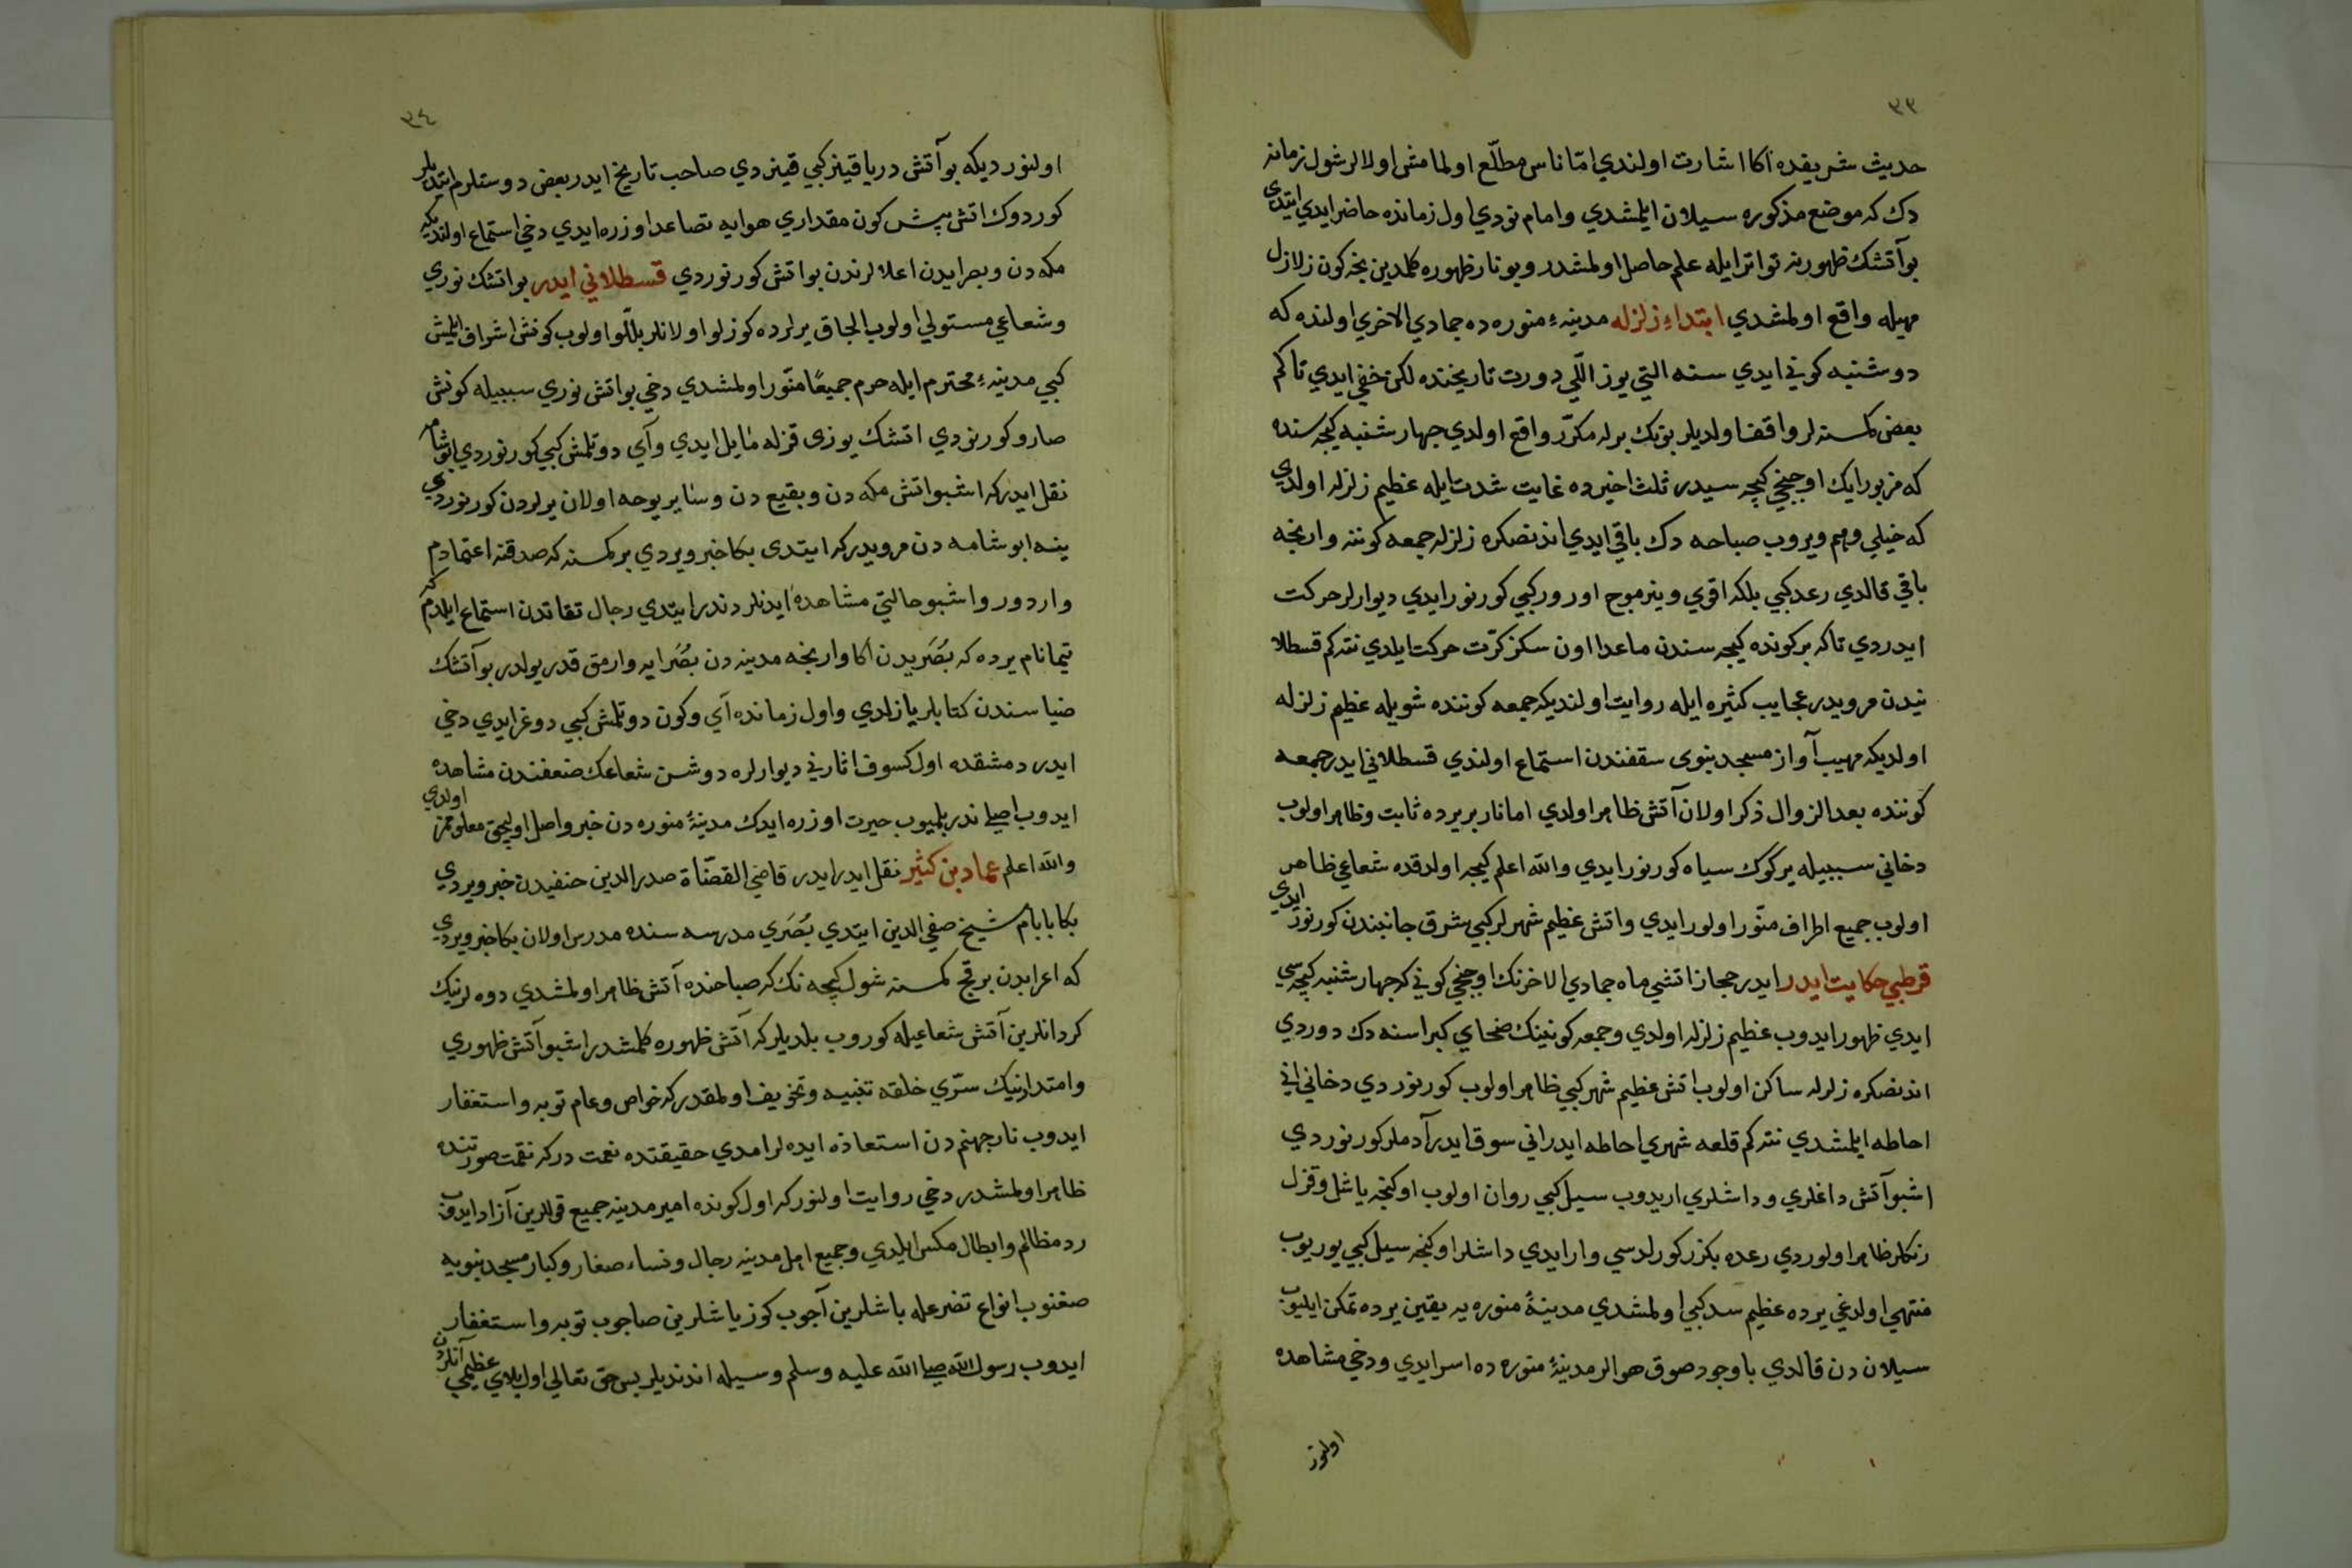 ٣٣
حديث شريفده اكا اشارت اولندي امّا ناس مطلّع اولمامش اولالر شول زمانه
دك كه موضع مذكوره سيلان ايلمشدي وامام نودي اول زمانده حاضر ايدي ايتدي
بوآتشك ظهورينه تواتر ايله علم حاصل اولمشدر وبونار ظهوره كلمدين نجه كون زلازل
مهيله واقع اولمشدي ابتداء زلزله مدينهء منوره ده جمادي الاخري اولنده كه
دوشنبه كوني ايدي سنه التي يوز اللّي دورت تاريخنده لكن خفي ايدي تاكم
بعض كمسنه لر واقف اولديلر بونك برله مكرّر واقع اولدي جهارشنبه كيجه سنده
كه مزبور ايك اوچنجي كيجه سيدر ثلث اخيرده غايت شدت ايله عظيم زلزله اولدي
كه خيلي وهم ويروب صباحه دك باقي ايدي اندنصكره زلزله جمعه كوننه وارنجه
باقي قالدي رعد كبي بلكه اقوي وينر موج اورور كبي كورنور ايدي ديوارلر حركت
ايدردي تاكه بر كونده كيجه سندن ماعدا اون سكز كرّت حركت ايلدي نته كم قسطلا
نيدن مرويدر عجايب كثيره ايله روايت اولنديكه جمعه كوننده شويله عظيم زلزله
اولديكه مهيب آواز مسجد نبوى سقفندن استماع اولندي قسطلاني ايدر جمعه
كوننده بعد الزوال ذكر اولان آتش ظاهر اولدي اما نار بر يرده ثابت وظاهر اولوب
دخاني سببيله يركوك سياه كورنور ايدي والله اعلم كيجه اولدقده شعاعي ظاهر
اولوب جميع اطراف منّور اولور ايدي واتش عظيم شهرلر كبي شرق جانبندن كورنور ايدي
قرطبي حكايت ايدر ايدر حجاز اتشي ماه جمادي الاخرنك اوچنجي كوني كه جهارشنبه كيجه سي
ايدي ظهور ايدوب عظيم زلزله اولدي وجمعه كوننك ضحاي كبراسنه دك دوردي
اندنصكره زلزله ساكن اولوب اتش عظيم شهر كبي ظاهر اولوب كورنوردي دخاني اني
احاطه ايلمشدي نته كم قلعه شهري احاطه ايدر اني سوق ايدر آدملر كورنوردي
اشبو آتش داغلري وداشلري اريدوب سيل كبي روان اولوب اوكنجه ياشل وقزل
رنكلر ظاهر اولوردي رعده بكزر كورلدسي وار ايدي داشلر اوكنجه سيل كبي يوريوب
منتهي اولدغي يرده عظيم سد كبي اولمشدي مدينهٔ منوره يه يقين يرده تمكن ايليوب
سيلان دن قالدي باوجود صوق هوالر مدينهٔ منوره ده اسر ايدي ودخي مشاهده
اولنور
٣٤
اولنور ديكه بوآتش دريا قينر كبي قينردي صاحب تاريخ ايدر بعض دوستلرم ايتديلر
كوردوك اتش بيش كون مقداري هوايه تصاعد اوزره ايدي دخي استماع اولنديكه
مكه دن وبصرايدن اعلا لرندن بواتش كورنوردي قسطلاني ايدر بواتشك نوري
وشعاعي مستولي اولوب الجاق يرلرده كوزلو اولانلر بللّو اولوب كونش اشراف ايلمش
كبي مدينهء محترم ايله حرم جميعًا منّور اولمشدي دخي بواتش نوري سببيله كونش
صارو كورنودي اتشك يوزى قزله مايل ايدي وآي دوتلمش كبي كورنوردي ابوشامه
نقل ايدر كه اشبو اتش مكه دن وبقيع دن وساير يوجه اولان يرلردن كورنوردي
ينه ابوشامه دن مرويدر كه ايتدى بكا خبر ويردي بر كمسنه كه صدقنه اعتمادم
واردور واشبو حالتي مشاهده ايدنلردندر ايتدي رجال ثقاتدن استماع ايلدم كه
تيما نام يرده كه بُصَريدن اكا وارنجه مدينه دن بصُرايه وارمق قدر يولدر بوآتشك
ضياسندن كتابلر يازلدي واول زمانده آي وكون دوتلمش كبي دوغرايدي دخي
ايدر دمشقده اول كسوف اثاريني ديوارلره دوشن شعاعك ضعفندن مشاهده
ايدوب اصلي ندر بلميوب حيرت اوزره ايدك مدينهٔ منوره دن خبر واصل اوليجق معلومز اولدي
والله اعلم عماد بن كثير نقل ايدر ايدر قاضي القضّاة صدر الدين حنفيدن خبر ويردي
بكا بابام شيخ صفي الدين ايتدي بُصَري مدرسه سنده مدرس اولان بكا خبر ويردي
كه اعرابدن برقچ كمسنه شول كيجه نك كه صباحنده آتش ظاهر اولمشدي دوه لرنيك
كردانلرين آتش شعاعيله كوروب بلديلر كه آتش ظهوره كلمشدر اشبو آتش ظهوري
وامتدادنيك سّري خلقه تنبيه وتخويف اولمقدر كه خواص وعام توبه واستغفار
ايدوب نار جهنم دن استعاذه ايده لر امدي حقيقتده نعمت در كه نقمت صورتنده
ظاهر اولمشدر دخي روايت اولنور كه اول كونده امير مدينه جميع قوللرين آزاد ايدوب
رد مظالم وابطال مكس ايلدي وجميع اهل مدينه رجال ونساء صغار وكبار مسجد نبويه
صغنوب انواع تضرعله باشلرين آجوب كوز ياشلرين صاجوب توبه واستغفار
ايدوب رسول الله صلي الله عليه وسلم وسيله اندنديلر بس حق تعالي اول بلاي عظيمي آنلردن